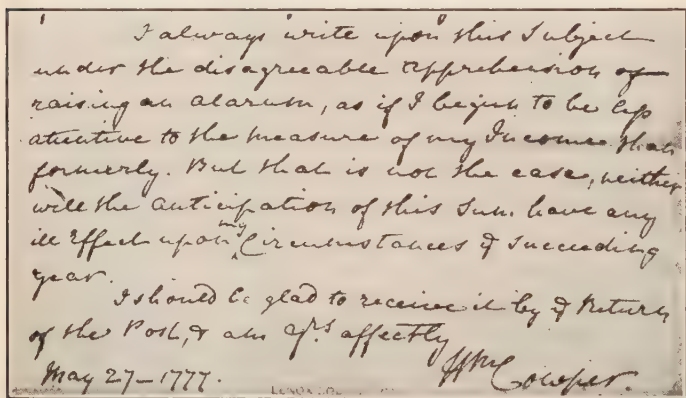 I always write upon this Subject
under the disagreeable apprehension of
raising an alarum, as if I begun to be less
attentive to the measure of my Income than
formerly. But that is not the case, neither
will the anticipation of this Sum have any
ill Effect upon my Circumstances ye succeeding
year.
I should be glad to receive it by ye Return
of the Post, & am yrs. affectly
Wm Cowper.
May 27-1777.